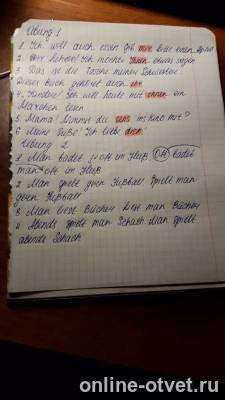 Übung 1
1. Ich will auch essen Gib mir bitte einen Apfel
2. Herr Lehrer! Ich möchte Ihnen etwas sagen
3. Das ist die Tasche meiner Schwester
Dieses Buch gehört auch ihr.
4. Kinder! Ich will heute mit ihnen ein
Märchen lesen
5. Mama! Nimmst du uns ins Kino mit?
6. Meine Süße! Ich liebe dich.
Übung 2
1. Man badet oft im Fluß. Oft badet
man oft im Fluß
2 Man spielt gern Fußball Spielt man
gern Fußball
3 Man liest Bücher Liest man Bücher
4 Abends spielt man Schach Man spielt
abends Schach
online-otvet.ru